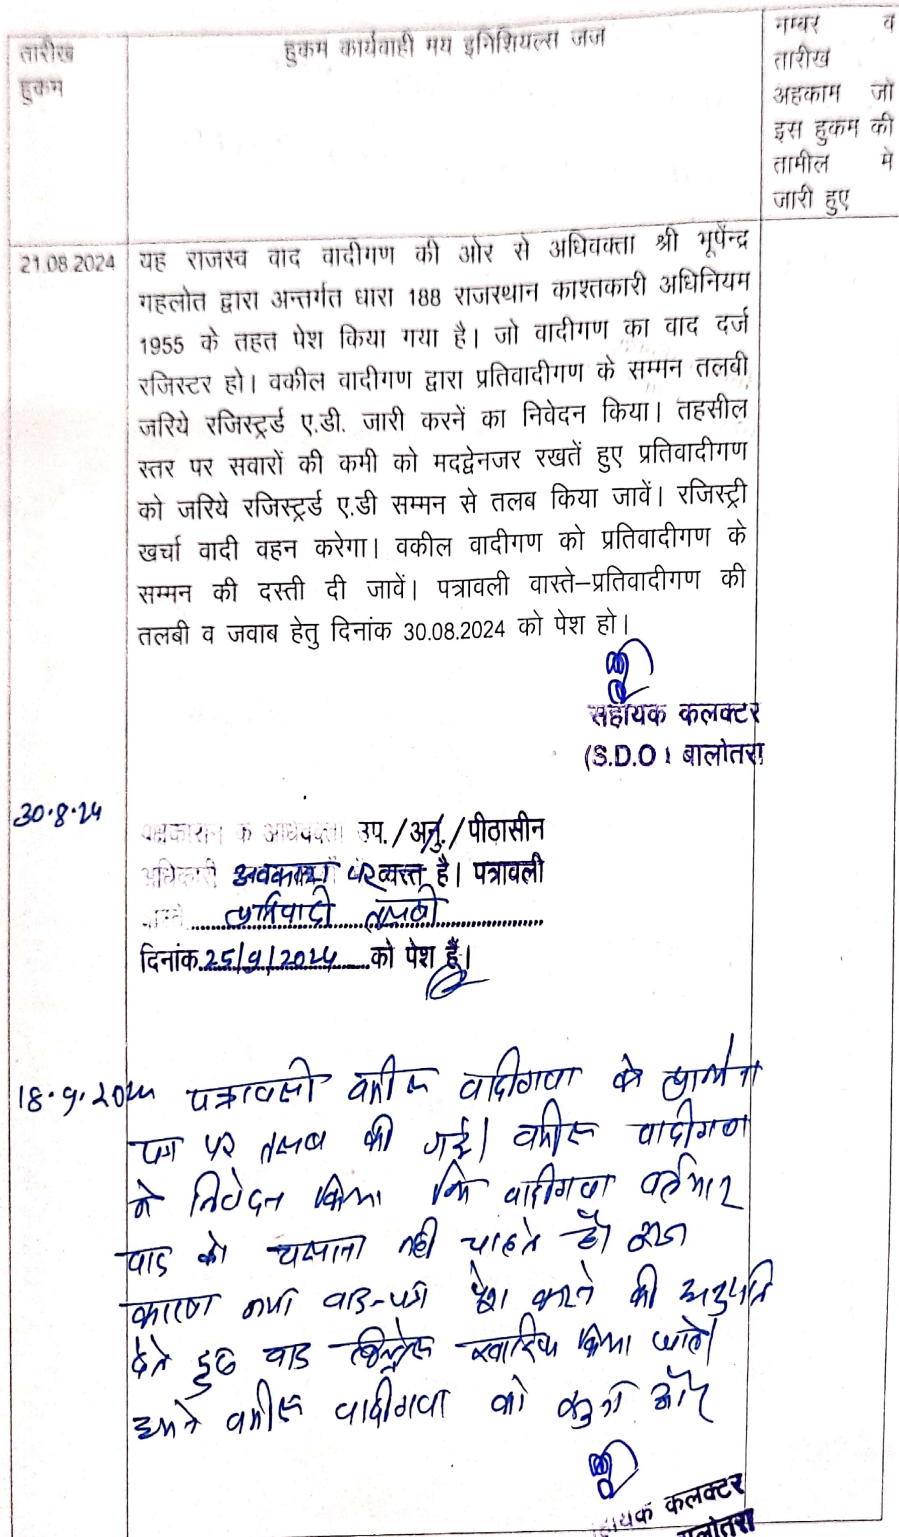 तारीख
हुकम
हुकम कार्यवाही मय इनिशियल्स जज
नम्बर व
तारीख
अहकाम जो
इस हुकम की
तामील मे
जारी हुए
21.08.2024
यह राजस्व वाद वादीगण की ओर से अधिवक्ता श्री भूपेन्द्र
गहलोत द्वारा अन्तर्गत धारा 188 राजस्थान काश्तकारी अधिनियम
1955 के तहत पेश किया गया है। जो वादीगण का वाद दर्ज
रजिस्टर हो। वकील वादीगण द्वारा प्रतिवादीगण के सम्मन तलबी
जरिये रजिस्ट्रर्ड ए.डी. जारी करनें का निवेदन किया। तहसील
स्तर पर सवारों की कमी को मदद्वेनजर रखतें हुए प्रतिवादीगण
को जरिये रजिस्ट्रर्ड ए.डी सम्मन से तलब किया जावें। रजिस्ट्री
खर्चा वादी वहन करेगा। वकील वादीगण को प्रतिवादीगण के
सम्मन की दस्ती दी जावें। पत्रावली वास्ते–प्रतिवादीगण की
तलबी व जवाब हेतु दिनांक 30.08.2024 को पेश हो।
सहायक कलक्टर
(S.D.O) बालोतरा
30.8.24
पक्षकारान के अधिवक्ता उप./अनु./पीठासीन
अधिकारी अवकाश पर व्यस्त है। पत्रावली
वास्ते प्रतिवादी तलबी
दिनांक 25/9/2024 को पेश हैं।
18.9.2024
पत्रावली वकील वादीगण के प्रार्थना
पत्र पर तलब की गई। वकील वादीगण
ने निवेदन किया कि वादीगण वर्तमान
वाद को चलाना नही चाहते है। इस
कारण नया वाद-पत्र पेश करने की अनुमति
देते हुए वाद खारिज किया जावे।
हमने वकील वादीगण को सुना और
सहायक कलक्टर
बालोतरा